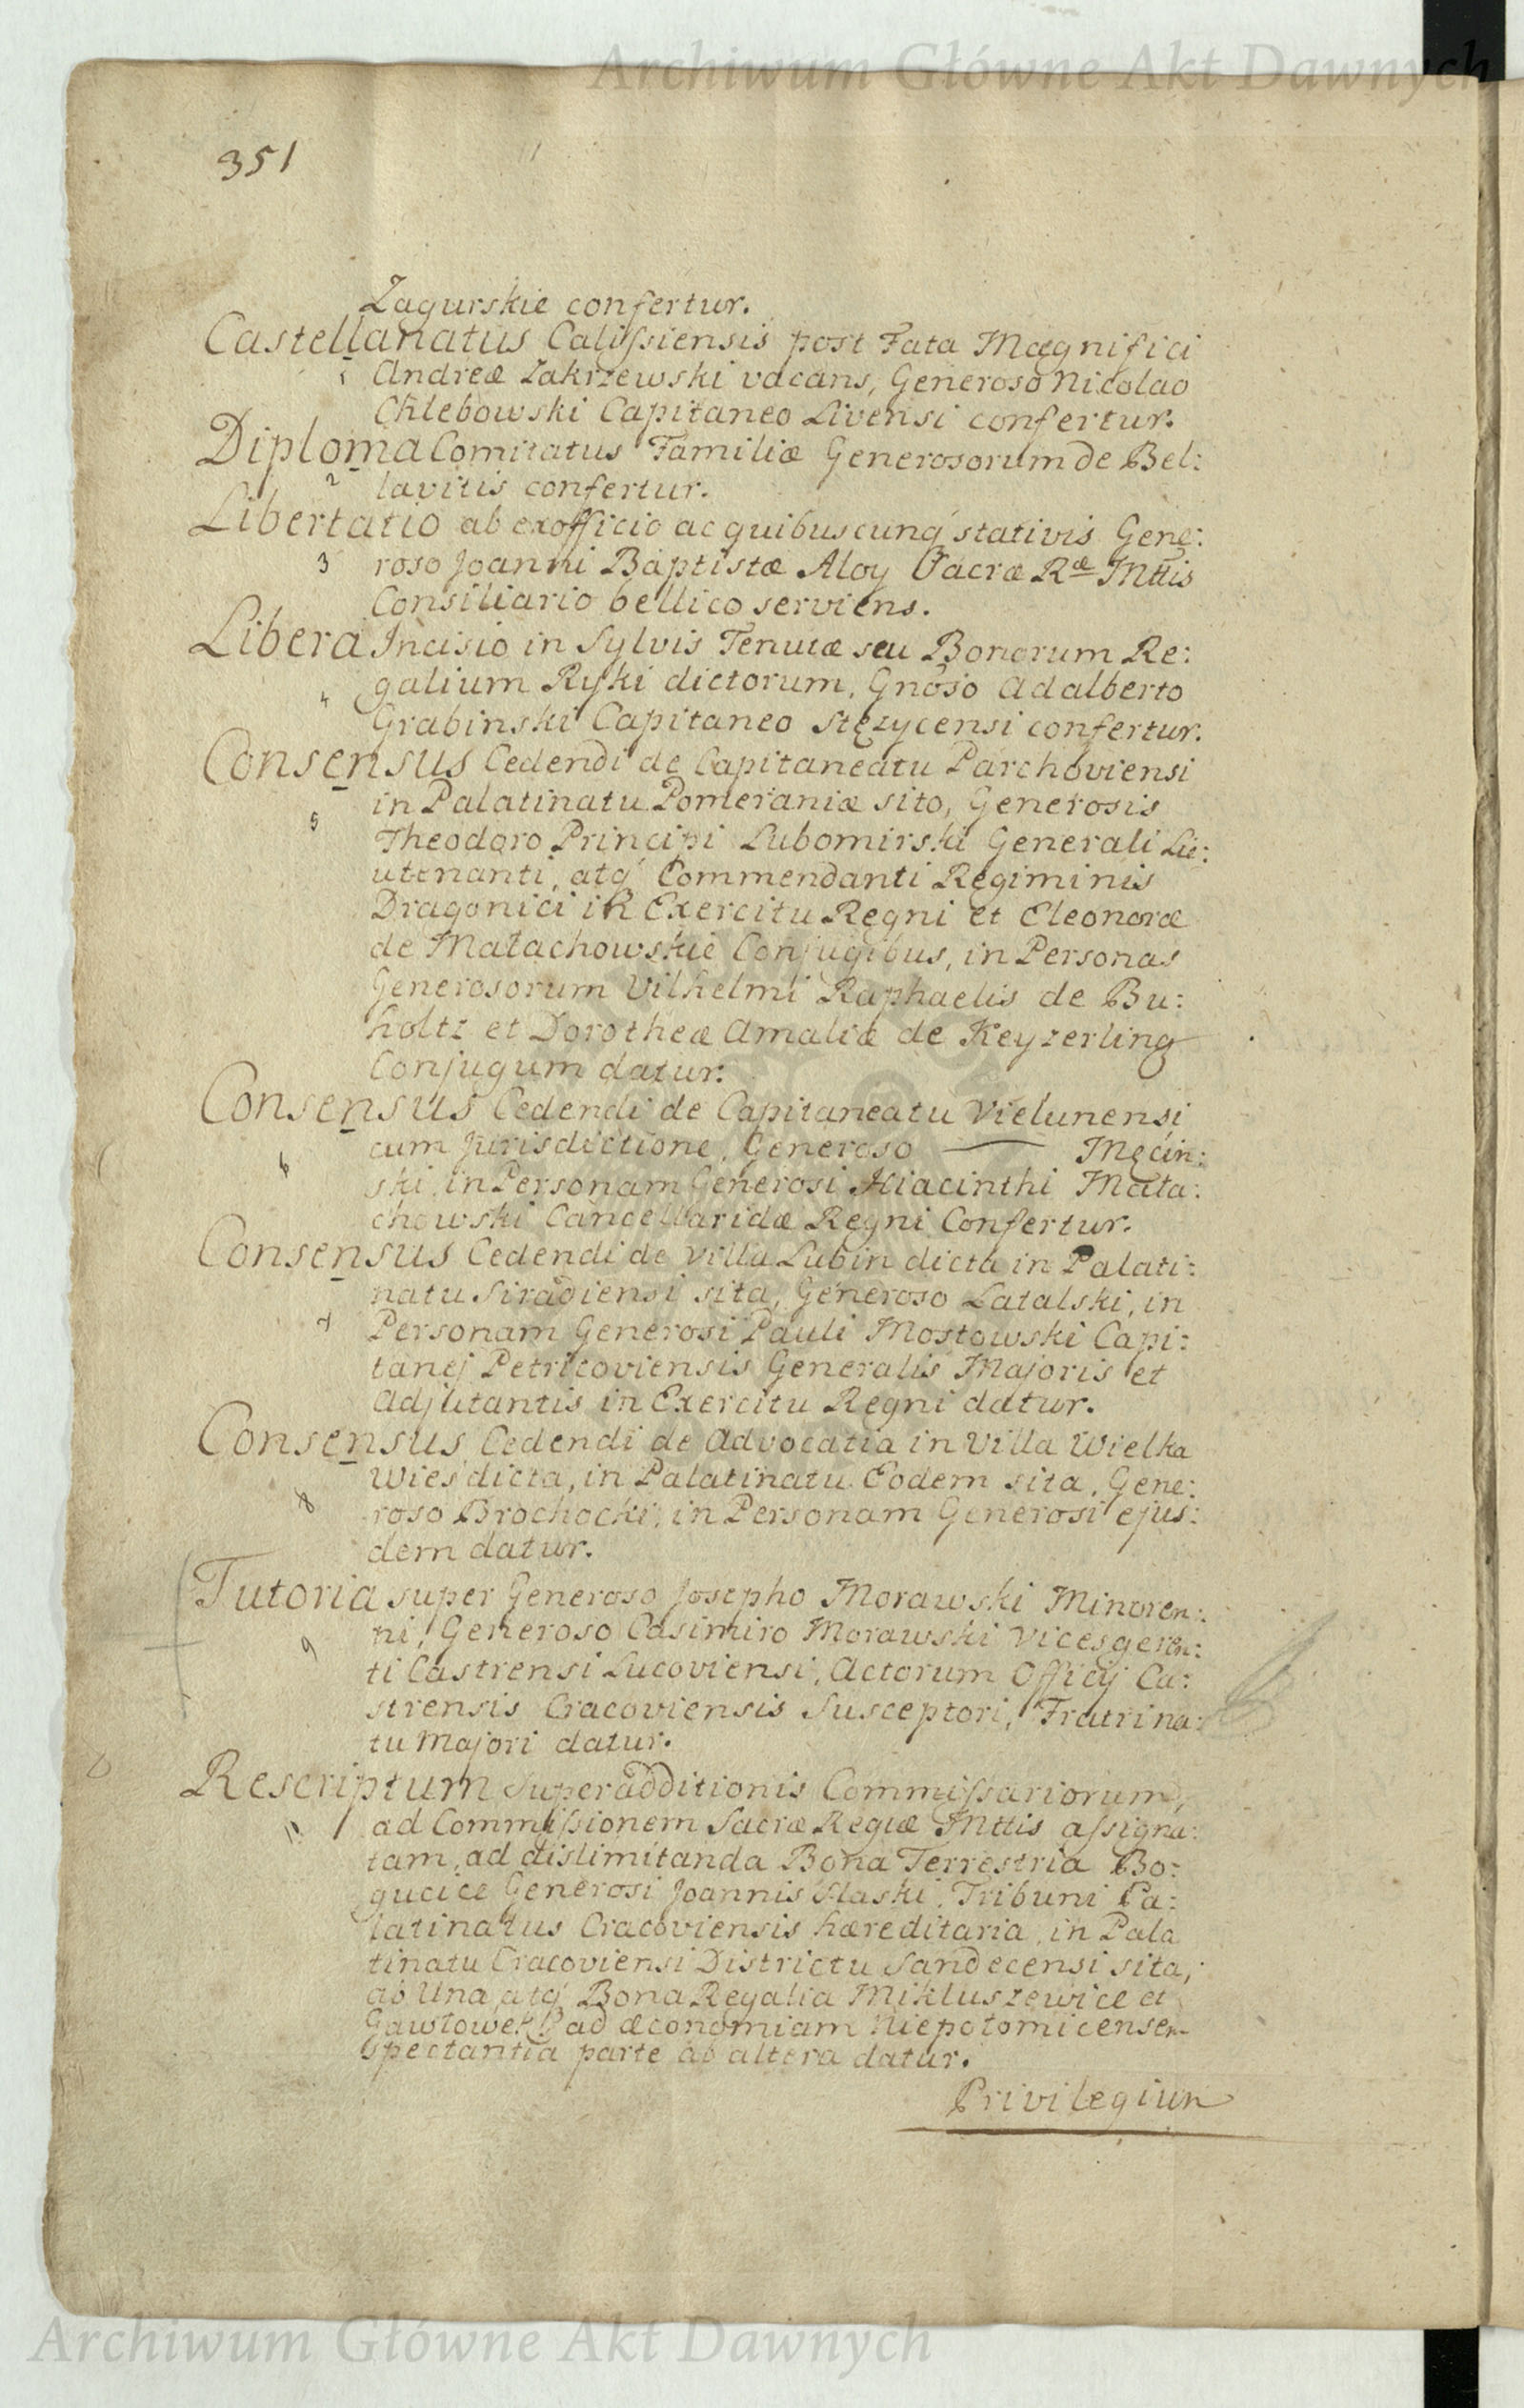 Archiwum Główne Akt Dawnych
351
Zagurskie confertur.
Castellanatus Calissiensis post Fata Magnifici
1 Andreæ Zakrzewski vacans, Generoso Nicolao
Chlebowski Capitaneo Livensi confertur.
Diploma Comitatus Familiæ Generosorum de Bel:
2 lavitis confertur.
Libertatio ab exofficio ac quibuscunq́ stativis Gene:
3 roso Joanni Baptistæ Aloy Sacræ Ræ Mttis
Consiliario bellico serviens.
Libera Incisio in Sylvis Tenutæ seu Bonorum Re:
4 galium Ryki dictorum, Gnoso Adalberto
Grabinski Capitaneo Stęzycensi confertur.
Consensus Cedendi de Capitaneatu Parchoviensi
in Palatinatu Pomeraniæ sito, Generosis
5 Theodoro Principi Lubomirski Generali Lie:
utenanti, atq́ Commendanti Regiminis
Dragonici in Exercitu Regni et Eleonoræ
de Małachowskie Conjugibus, in Personas
Generosorum Vilhelmi Raphaelis de Bu:
holtz et Dorotheæ Amaliæ de Keyzerling
Conjugum datur.
Consensus Cedendi de Capitaneatu Vielunensi
cum Jurisdictione, Generoso — Męcin:
6 ski, in Personam Generosi Hiacinthi Mała:
chowski Cancellaridæ Regni Confertur.
Consensus Cedendi de Villa Lubin dicta in Palati:
natu Siradiensi sita, Generoso Latalski, in
7 Personam Generosi Pauli Mostowski Capi:
tanej Petricoviensis Generalis Majoris et
Adjutantis in Exercitu Regni datur.
Consensus Cedendi de Advocatia in Villa Wielka
Wies dicta, in Palatinatu Eodem sita, Gene:
8 roso Brochocki, in Personam Generosi ejus:
dem datur.
Tutoria super Generoso Josepho Morawski Minoren:
9 ni, Generoso Casimiro Morawski Vicesgeren:
ti Castrensi Lucoviensi, Actorum Officij Ca:
strensis Cracoviensis Susceptori, Fratri na:
tu Majori datur.
Rescriptum Superadditionis Commissariorum,
ad Commissionem Sacræ Regiæ Mttis assigna:
tam, ad dislimitanda Bona Terrestria Bo:
gucice Generosi Joannis Slaski, Tribuni Pa:
latinatus Cracoviensis hæreditaria, in Pala
tinatu Cracoviensi Districtu Sandecensi sita,
ab Una, atq́ Bona Regalia Mikluszewice et
Gawłowek ad œconomiam Niepołomicensem
spectantia parte ab altera datur.
Privilegium
Archiwum Główne Akt Dawnych